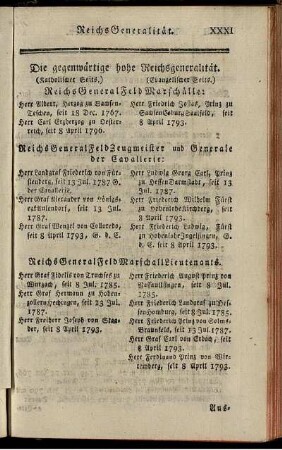 ReichsGeneralität. XXXI
Die gegenwärtige hohe Reichsgeneralität.
(Katholischer Seits.) (Evangelischer Seits.)
ReichsGeneralFeldMarschälle:
Herr Albert, Herzog zu Sachsen-
Teschen, seit 18 Dec. 1767.
Herr Carl Erzherzog zu Oester-
reich, seit 8 April 1790.
Herr Friedrich Josias, Prinz zu
SachsenCoburgSaalfeld, seit
8 April 1793.
ReichsGeneralFeldZeugmeister und Generale
der Cavallerie:
Herr Landgraf Friederich von Für-
stenberg, seit 13 Jul. 1787 G.
der Cavallerie.
Herr Graf Alexander von Königs-
eggAulendorf, seit 13 Jul.
1787.
Herr Graf Wenzel von Colloredo,
seit 8 April 1793, G. d. C.
Herr Ludwig Georg Carl, Prinz
zu HessenDarmstadt, seit 13
Jul. 1787.
Herr Friederich Wilhelm Fürst
zu HohenloheKirchberg, seit
8 April 1793.
Herr Friederich Ludwig, Fürst
zu HohenloheIngelfingen, G.
d. C. seit 8 April 1793.
ReichsGeneralFeldMarschallLieutenants.
Herr Graf Fidelis von Truchseß zu
Wurzach, seit 8 Jul. 1785.
Herr Graf Hermann zu Hohen-
zollernHechingen, seit 13 Jul.
1787.
Herr Freiherr Joseph von Sta-
der, seit 8 April 1793.
Herr Friederich August Prinz von
NassauUsingen, seit 8 Jul.
1785.
Herr Friederich Landgraf zu Hes-
senHomburg, seit 8 Jul. 1785.
Herr Friederich Prinz von Solms-
Braunfels, seit 13 Jul. 1787.
Herr Graf Carl von Erbach, seit
8 April 1793.
Herr Ferdinand Prinz von Wir-
temberg, seit 8 April 1793.
Aus-